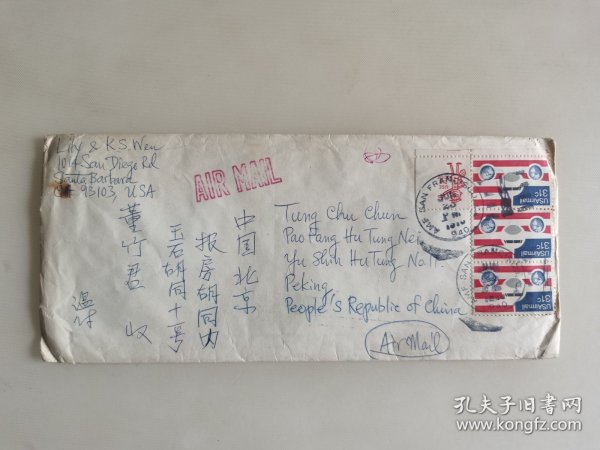 Lily & K.S. Wen
1014 San Diego Rd
Santa Barbara
93103, USA
AIR MAIL
Tung Chu Chun
Pao Fang Hu Tung Nei
Yu Shih Hu Tung No. 11
Peking,
People's Republic of China
Air Mail
中国北京
报房胡同内
玉石胡同十号
董竹君 收
AMF SAN FRANCISCO
USAirmail
31c
USAirmail
31c
USAirmail
31c
孔夫子旧书网
www.kongfz.com